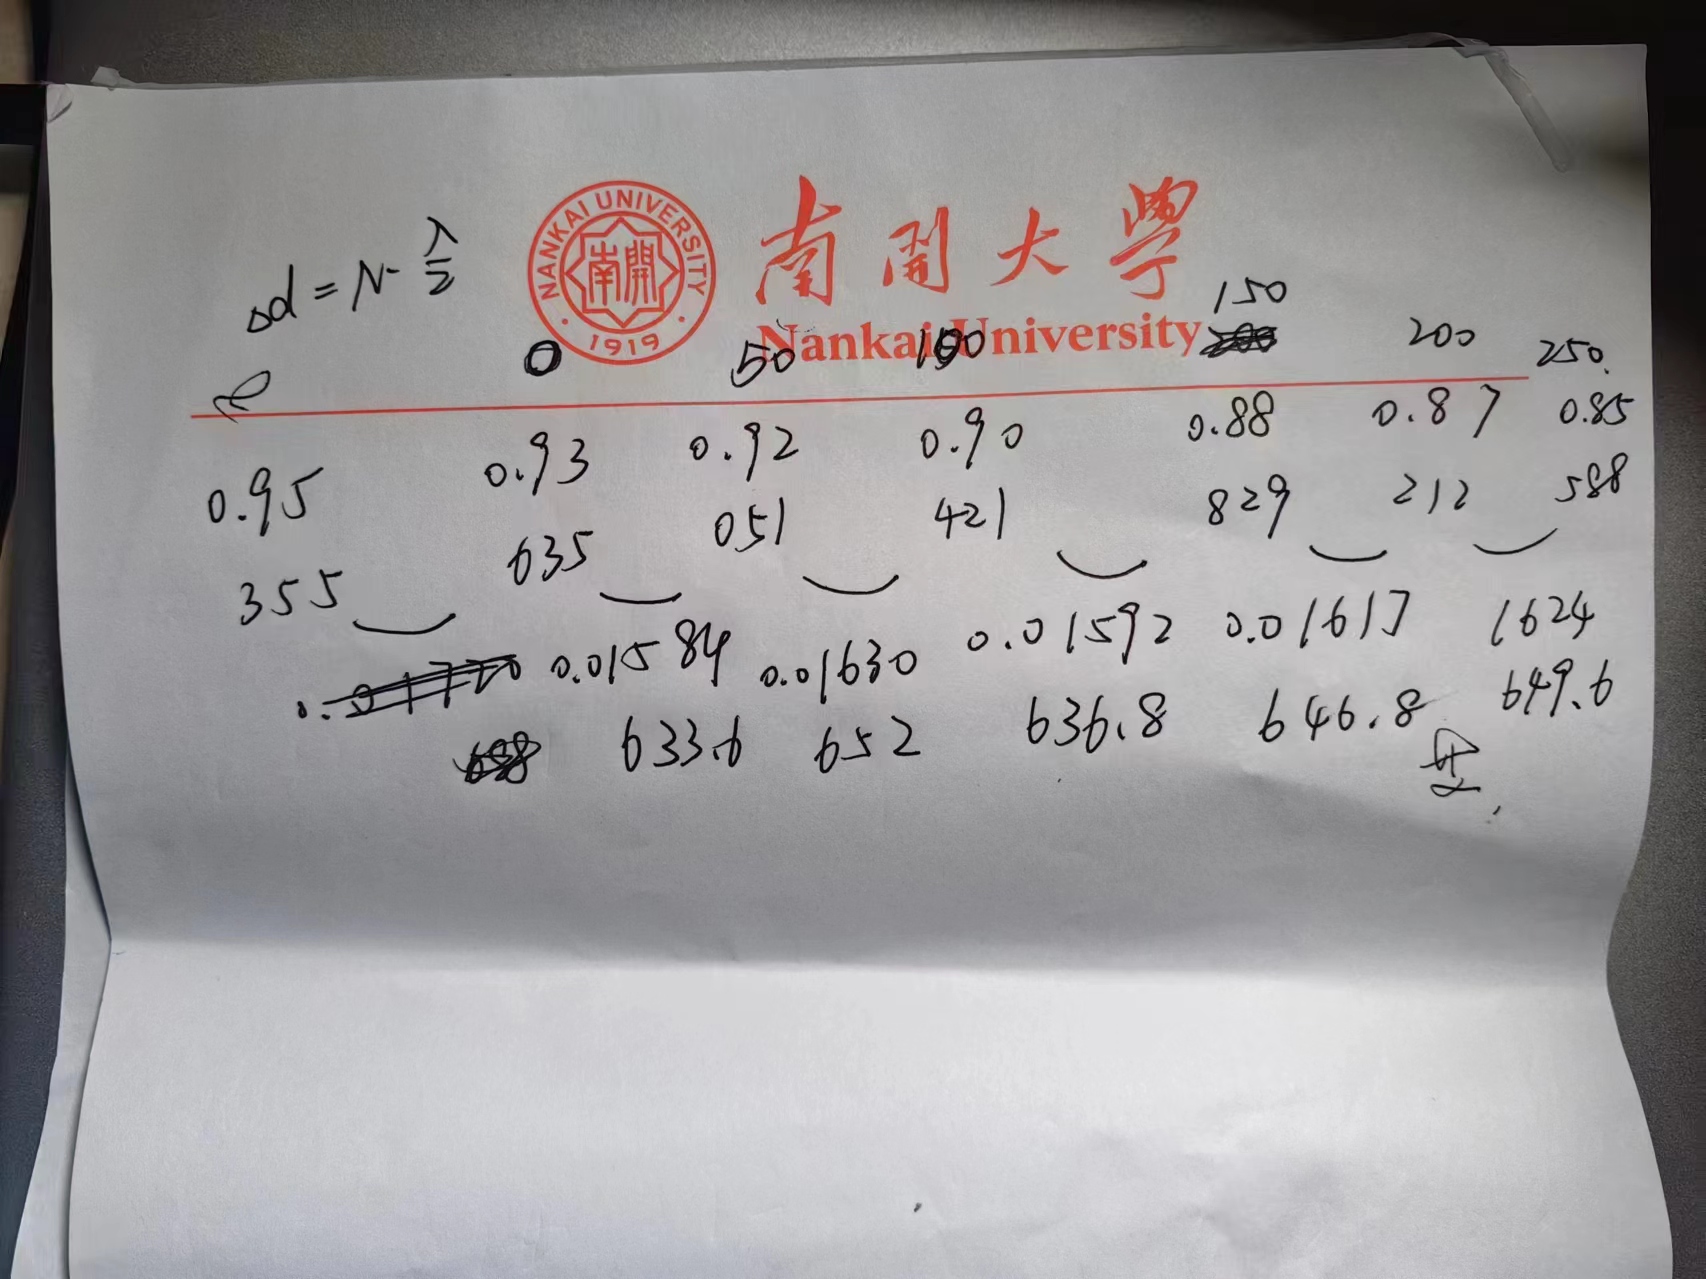 NANKAI UNIVERSITY
南開
1919
南開大學
Nankai University
Δd = N · λ/2
0 50 100 150 200 250.
0.95 0.93 0.92 0.90 0.88 0.87 0.85
355 635 051 421 829 212 588
0.01584 0.01630 0.01592 0.01617 1624
633.6 652 636.8 646.8 649.6